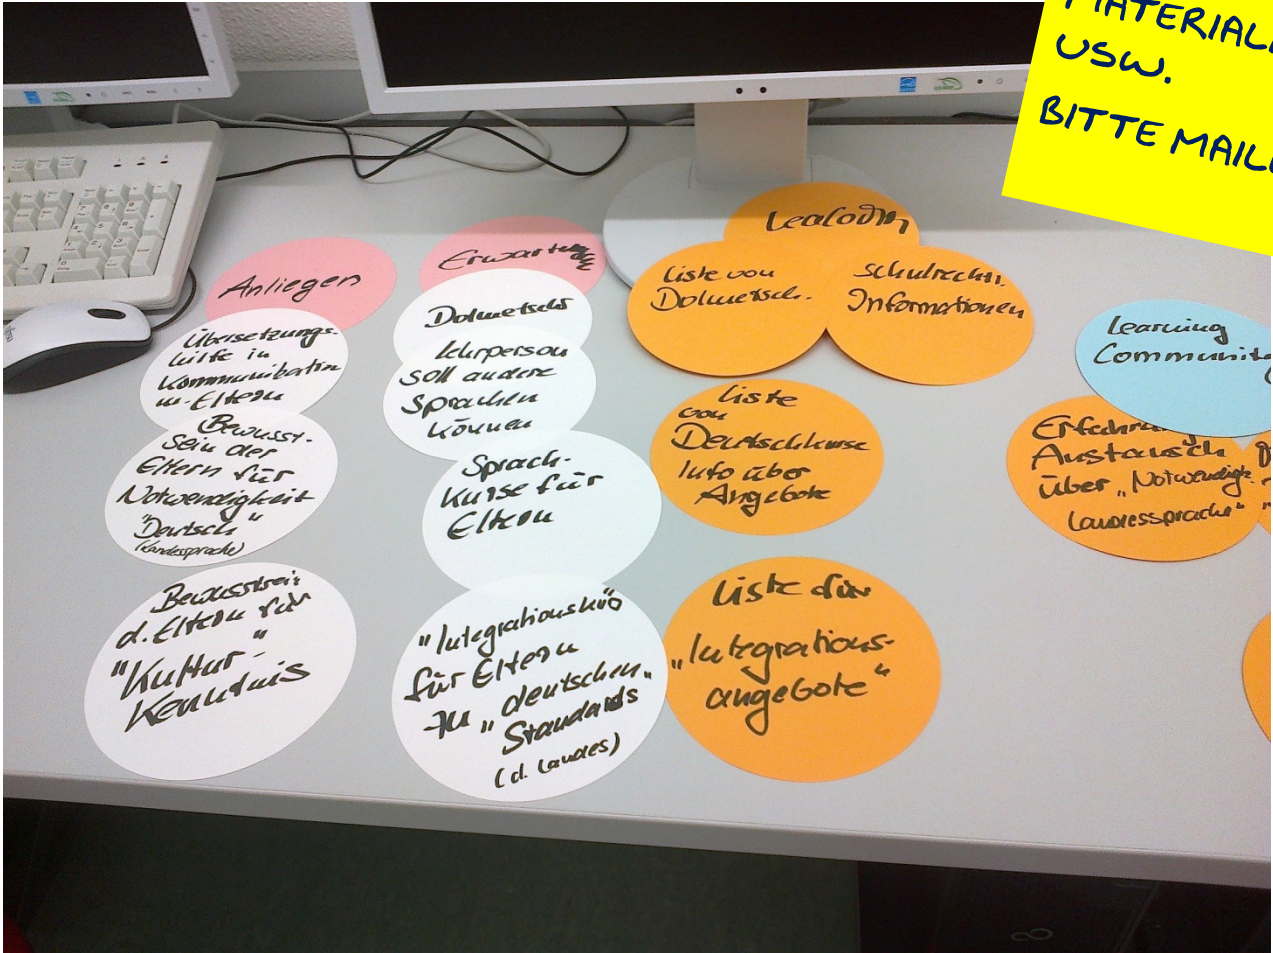 MATERIALI
USW.
BITTE MAILE
Anliegen
Übersetzungs-
hilfe in
Kommunikation
m. Eltern
Bewusst-
sein der
Eltern für
Notwendigkeit
"Deutsch"
(Landessprache)
Bewusstsein
d. Eltern für
"Kultur-"
Kenntnis
Dolmetscher
Lehrperson
soll andere
Sprachen
können
Sprach-
kurse für
Eltern
für Eltern
zu "deutschen"
Standards
(d. Landes)
Liste von
Dolmetsch.
schulrechtl.
Informationen
Liste
von
Deutschkurse
Info über
Angebote
Liste für
"Integrations-
angebote"
Learning
Community
Erfahrung
Austausch
über "Notwendigk.
Landessprache"